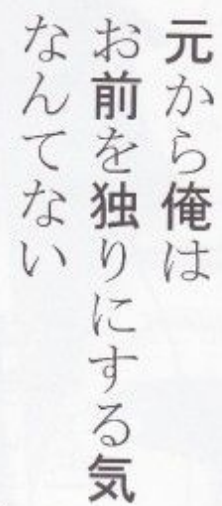 元から俺は
お前を独りにする気
なんてない